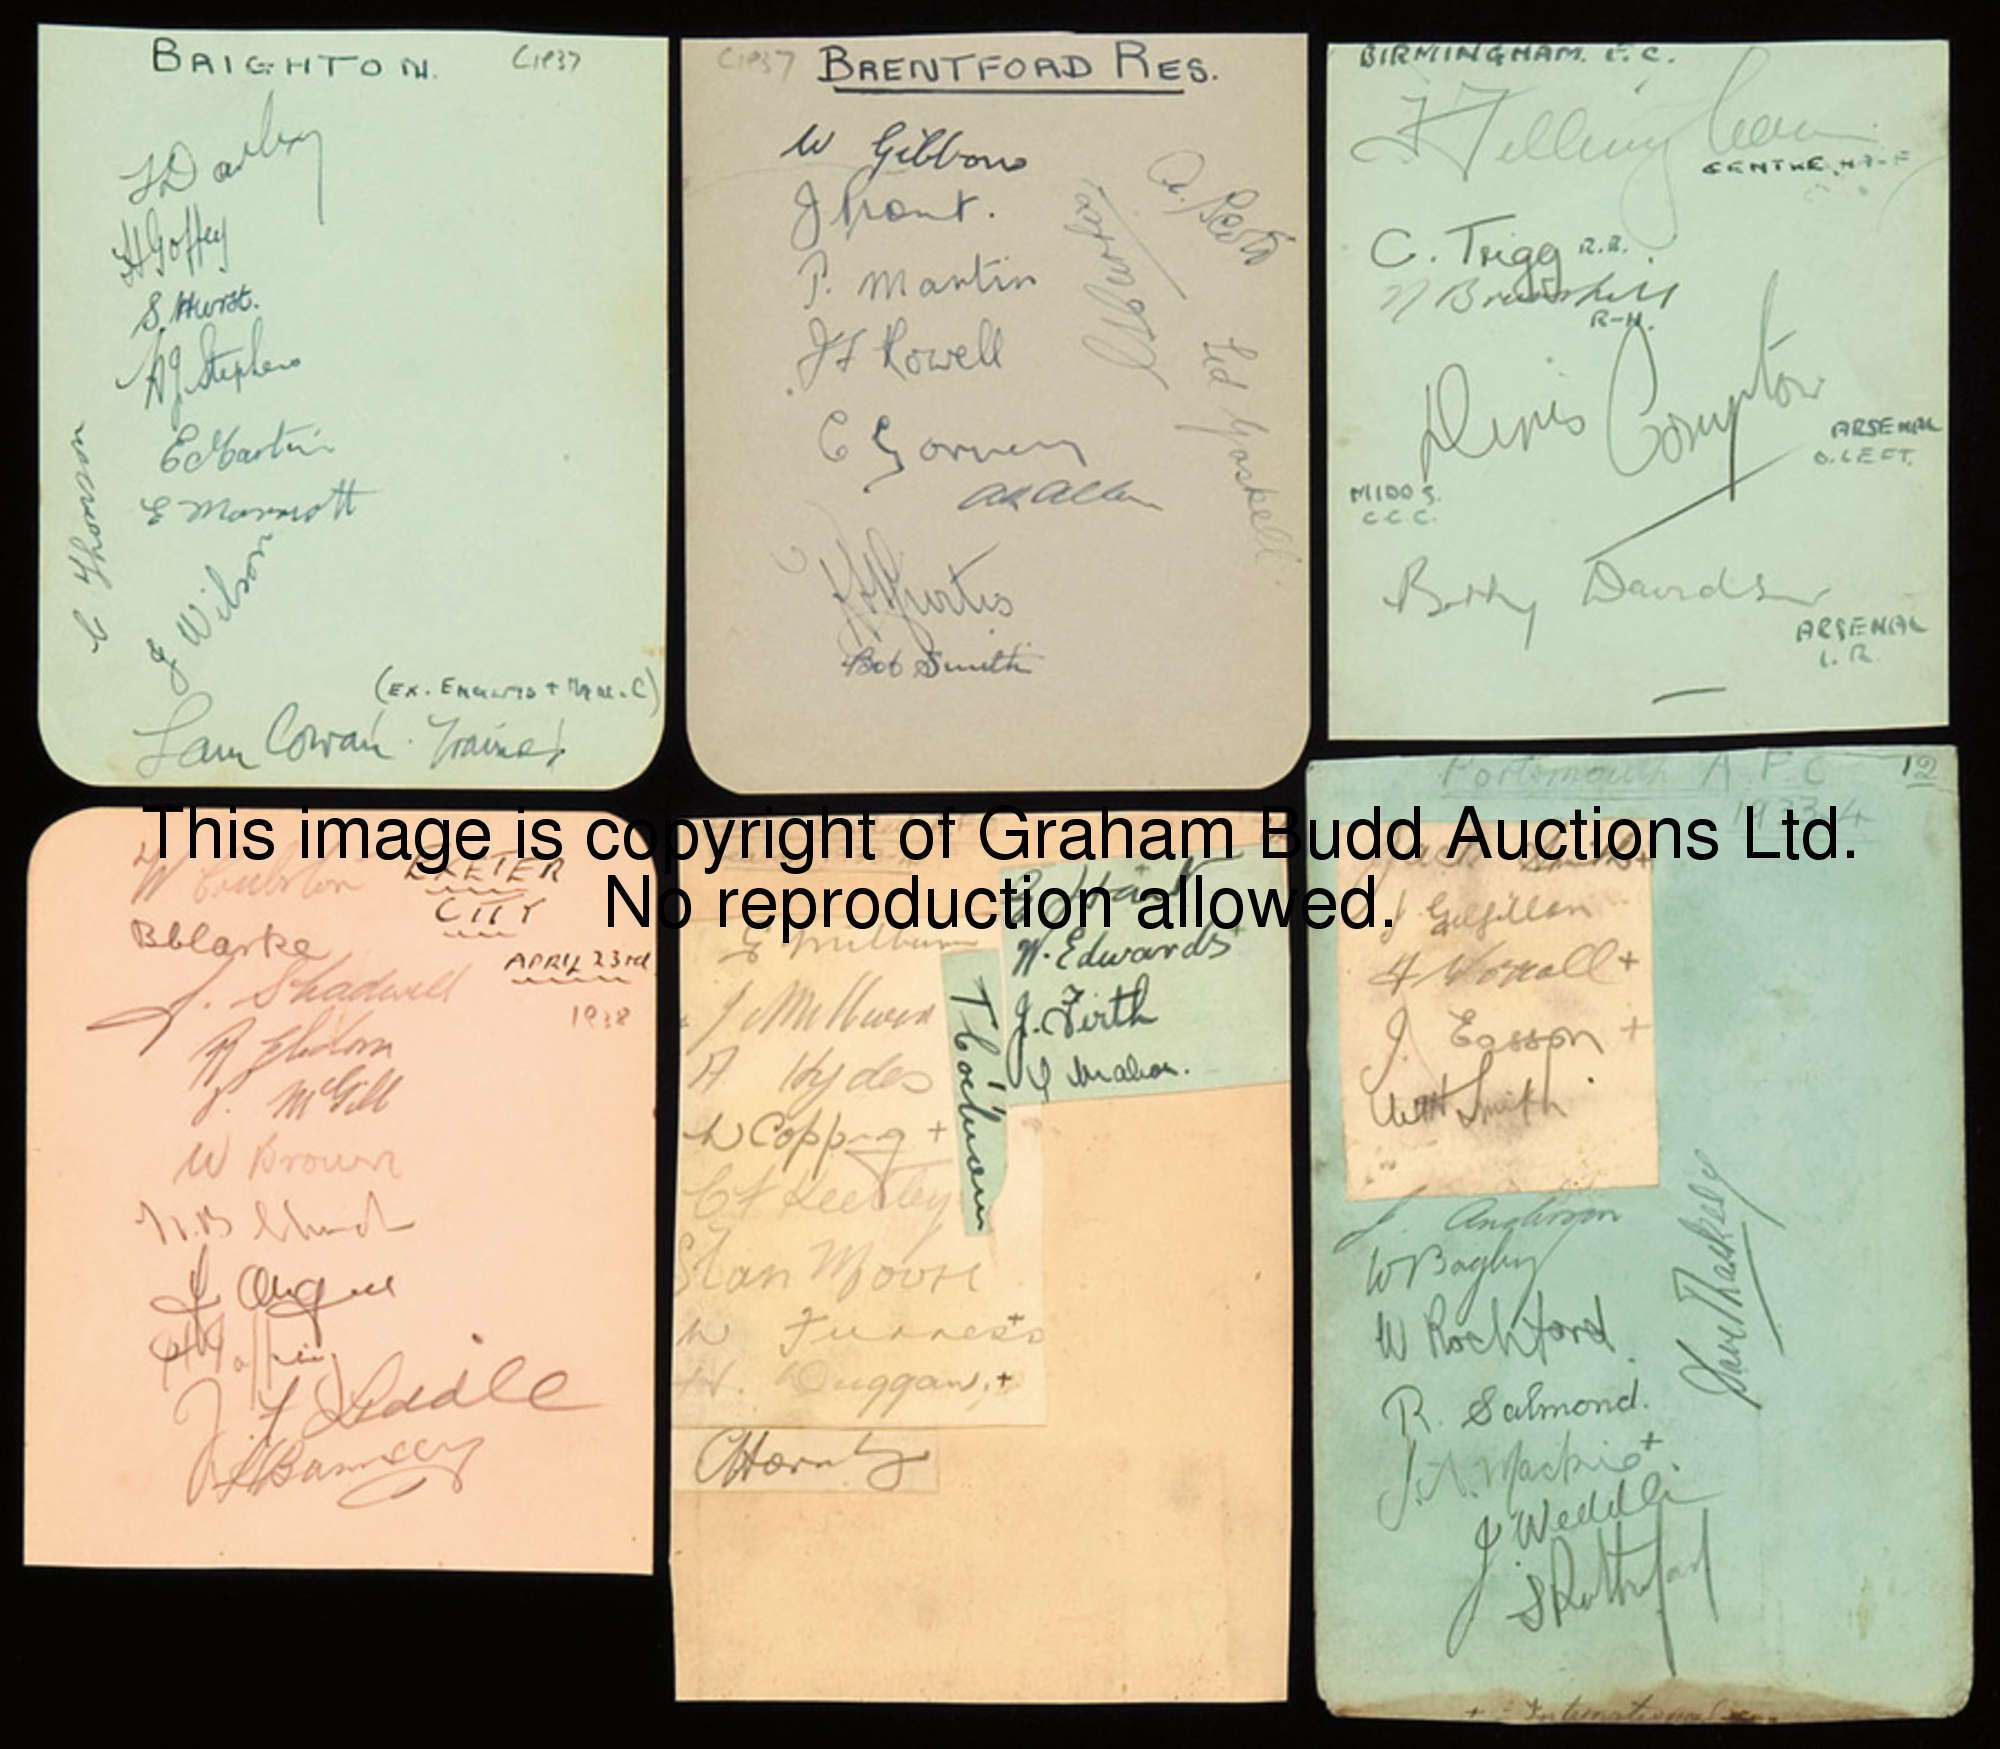 BRIGHTON. C1937
J Darley
H Goffey
S. Hurst.
A J. Stephens
E Martin
E Marriott
J Wilson
(EX. ENGLAND + MAN. C)
Sam Cowan. Trainer
C1937 BRENTFORD RES.
W Gibbons
A. Scott
J
P. Martin
J F Rowell
Ted Gaskell
C Gorman
Allen
Curtis
Bob Smith
BIRMINGHAM. F.C.
Fillingham
CENTRE
C. Trigg R.B.
Brunskill
R-H.
Denis Compton
ARSENAL
O. LEFT.
MIDDS.
C C C.
Bobby Davidson
ARSENAL
I. R.
This image is copyright of Graham Budd Auctions Ltd.
No reproduction allowed.
EXETER
CITY
B Clarke
APRIL 23rd
J. Shadwell
1938
R Ebdon
J. McGill
W Brown
H. B Church
J. Angus
J F Liddle
Bamsey
E Milburn
J Milburn
A Hydes
W Copping +
C F Keetley
Stan Moore
W Furness +
H. Duggan, +
C Hornby
T Cochrane
G Hart
W. Edwards +
J. Firth
J Mahon.
Portsmouth A.F.C 12
1933-4
Jack Smith +
J Gilfillan
F Worrall +
J. Easson +
W H Smith
J. Anderson
W Bagley
W Rochford
Dave Thackeray
R. Salmond.
J. A. Mackie +
J Weddle
S Rutherford
+ = International